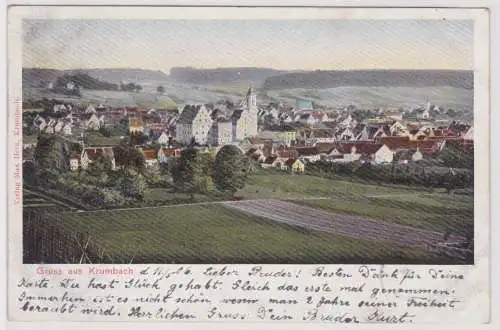 Verlag Max Hein, Krumbach.
Gruss aus Krumbach d. Lieber Bruder! Besten Dank für Deine
Karte. Du hast Glück gehabt. Gleich das erste mal genommen.
Immerhin ist es nicht schön, wenn man 2 Jahre seiner Freiheit
beraubt wird. Herzlichen Gruss Dein Bruder Kurt.